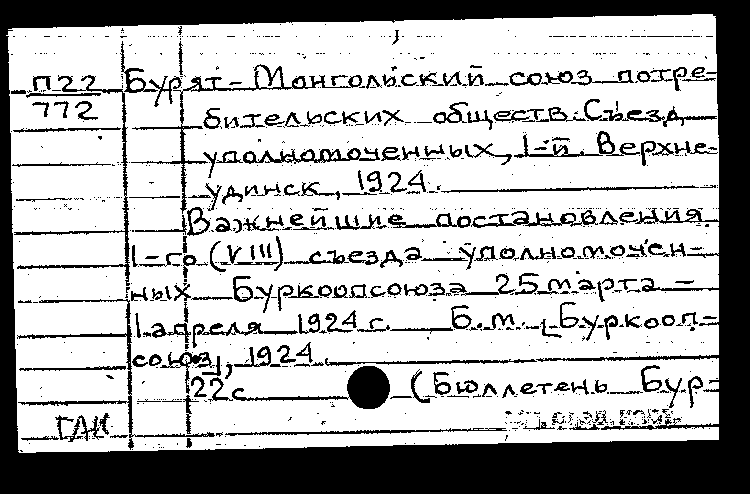 П22 Бурят-Монгольский союз потре-
772
бительских обществ. Съезд
уполномоченных, 1-й. Верхне-
удинск, 1924.
Важнейшие постановления
1-го (VIII) съезда уполномочен-
ных Буркоопсоюза 25 марта -
1 апреля 1924 г. Б.м. [Буркооп-
союз], 1924.
22 с (Бюллетень Бур-